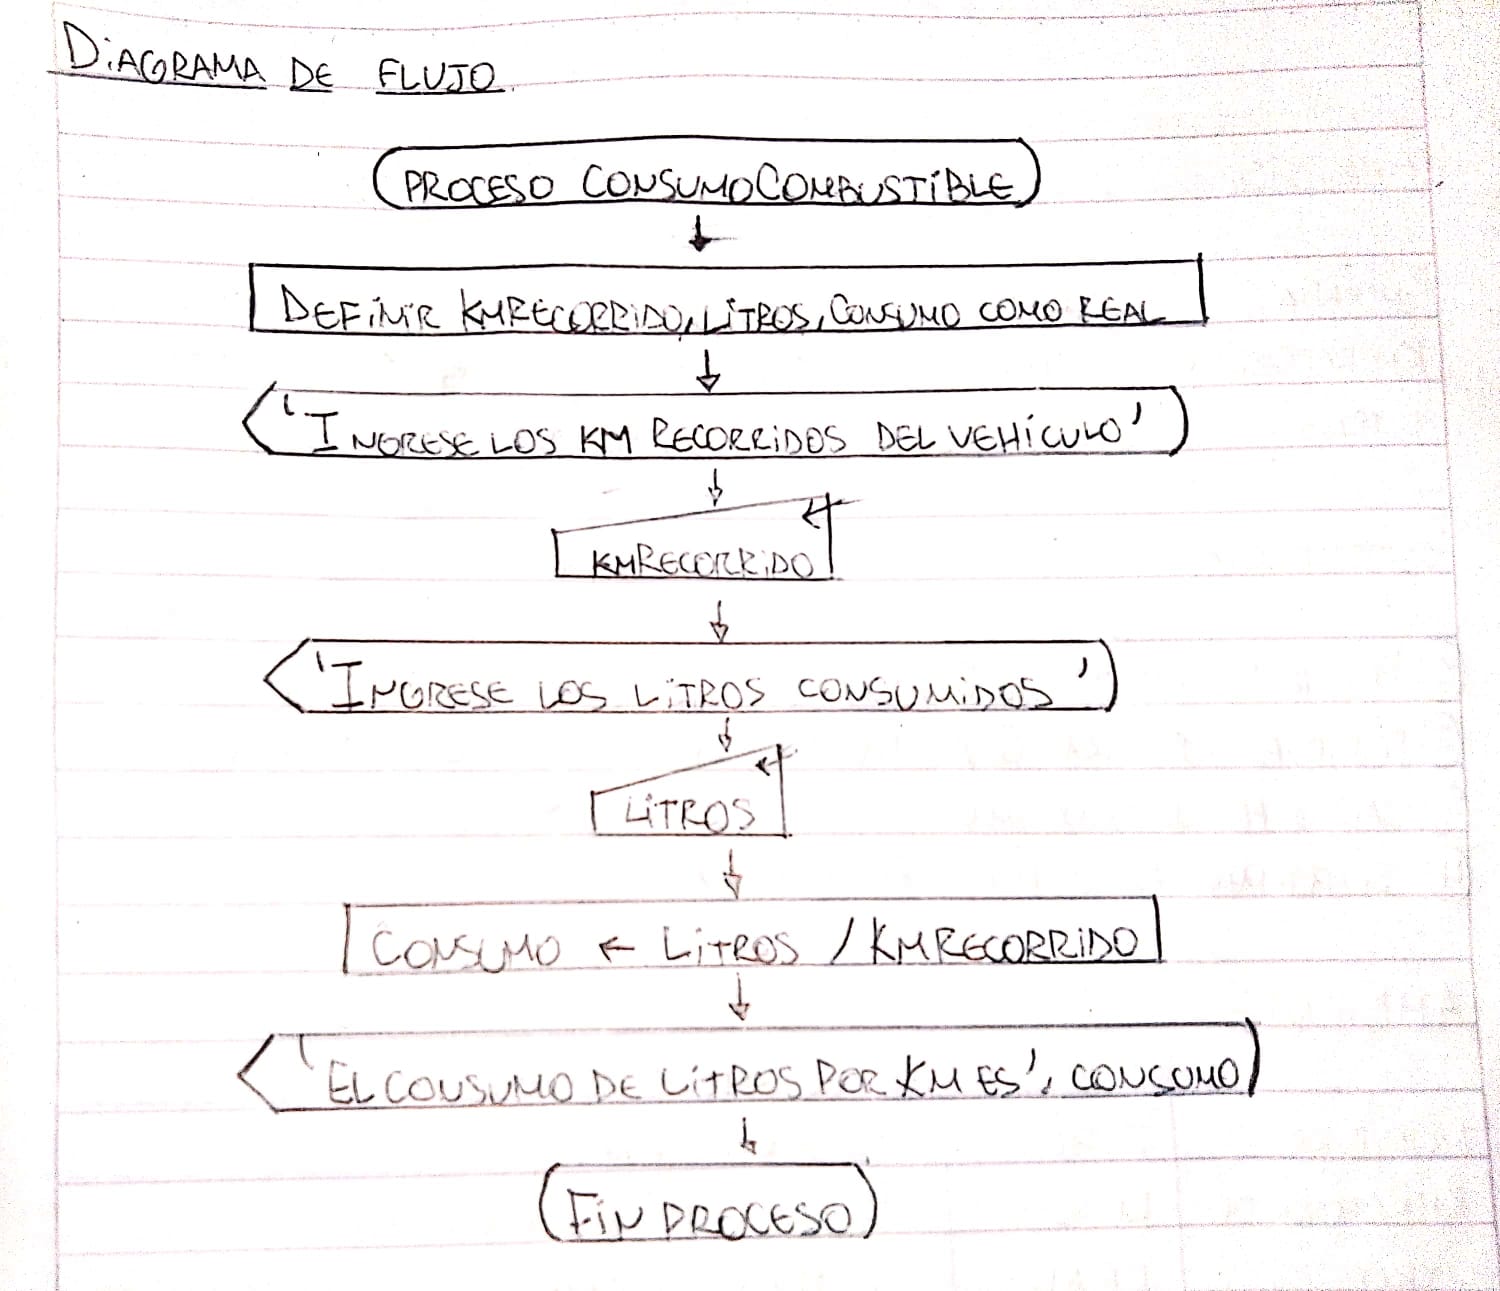 DiAGRAMA DE FLUJO.
PROCESO CONSUMOCOMBUSTiBLE
DEFiNiR KMRECORRIDO, LiTROS, CONSUMO COMO REAL
'INGRESE LOS KM RECORRiDOS DEL VEHÍCULO'
KMRECORRiDO
'INGRESE LOS LiTROS CONSUMiDOS'
LiTROS
CONSUMO ← LiTROS / KMRECORRiDO
'EL CONSUMO DE LiTROS POR KM ES', CONSUMO
FiN PROCESO